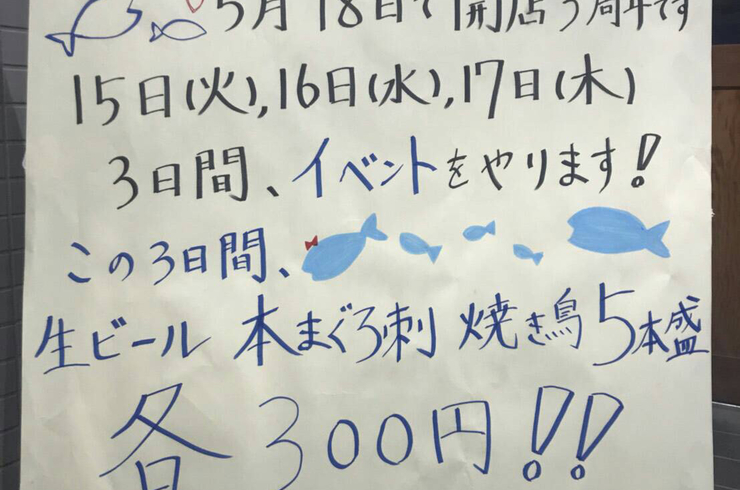 5月18日で開店3周年です
15日(火),16日(水),17日(木)
3日間、イベントをやります!
この3日間、
生ビール 本まぐろ刺 焼き鳥5本盛
各300円!!